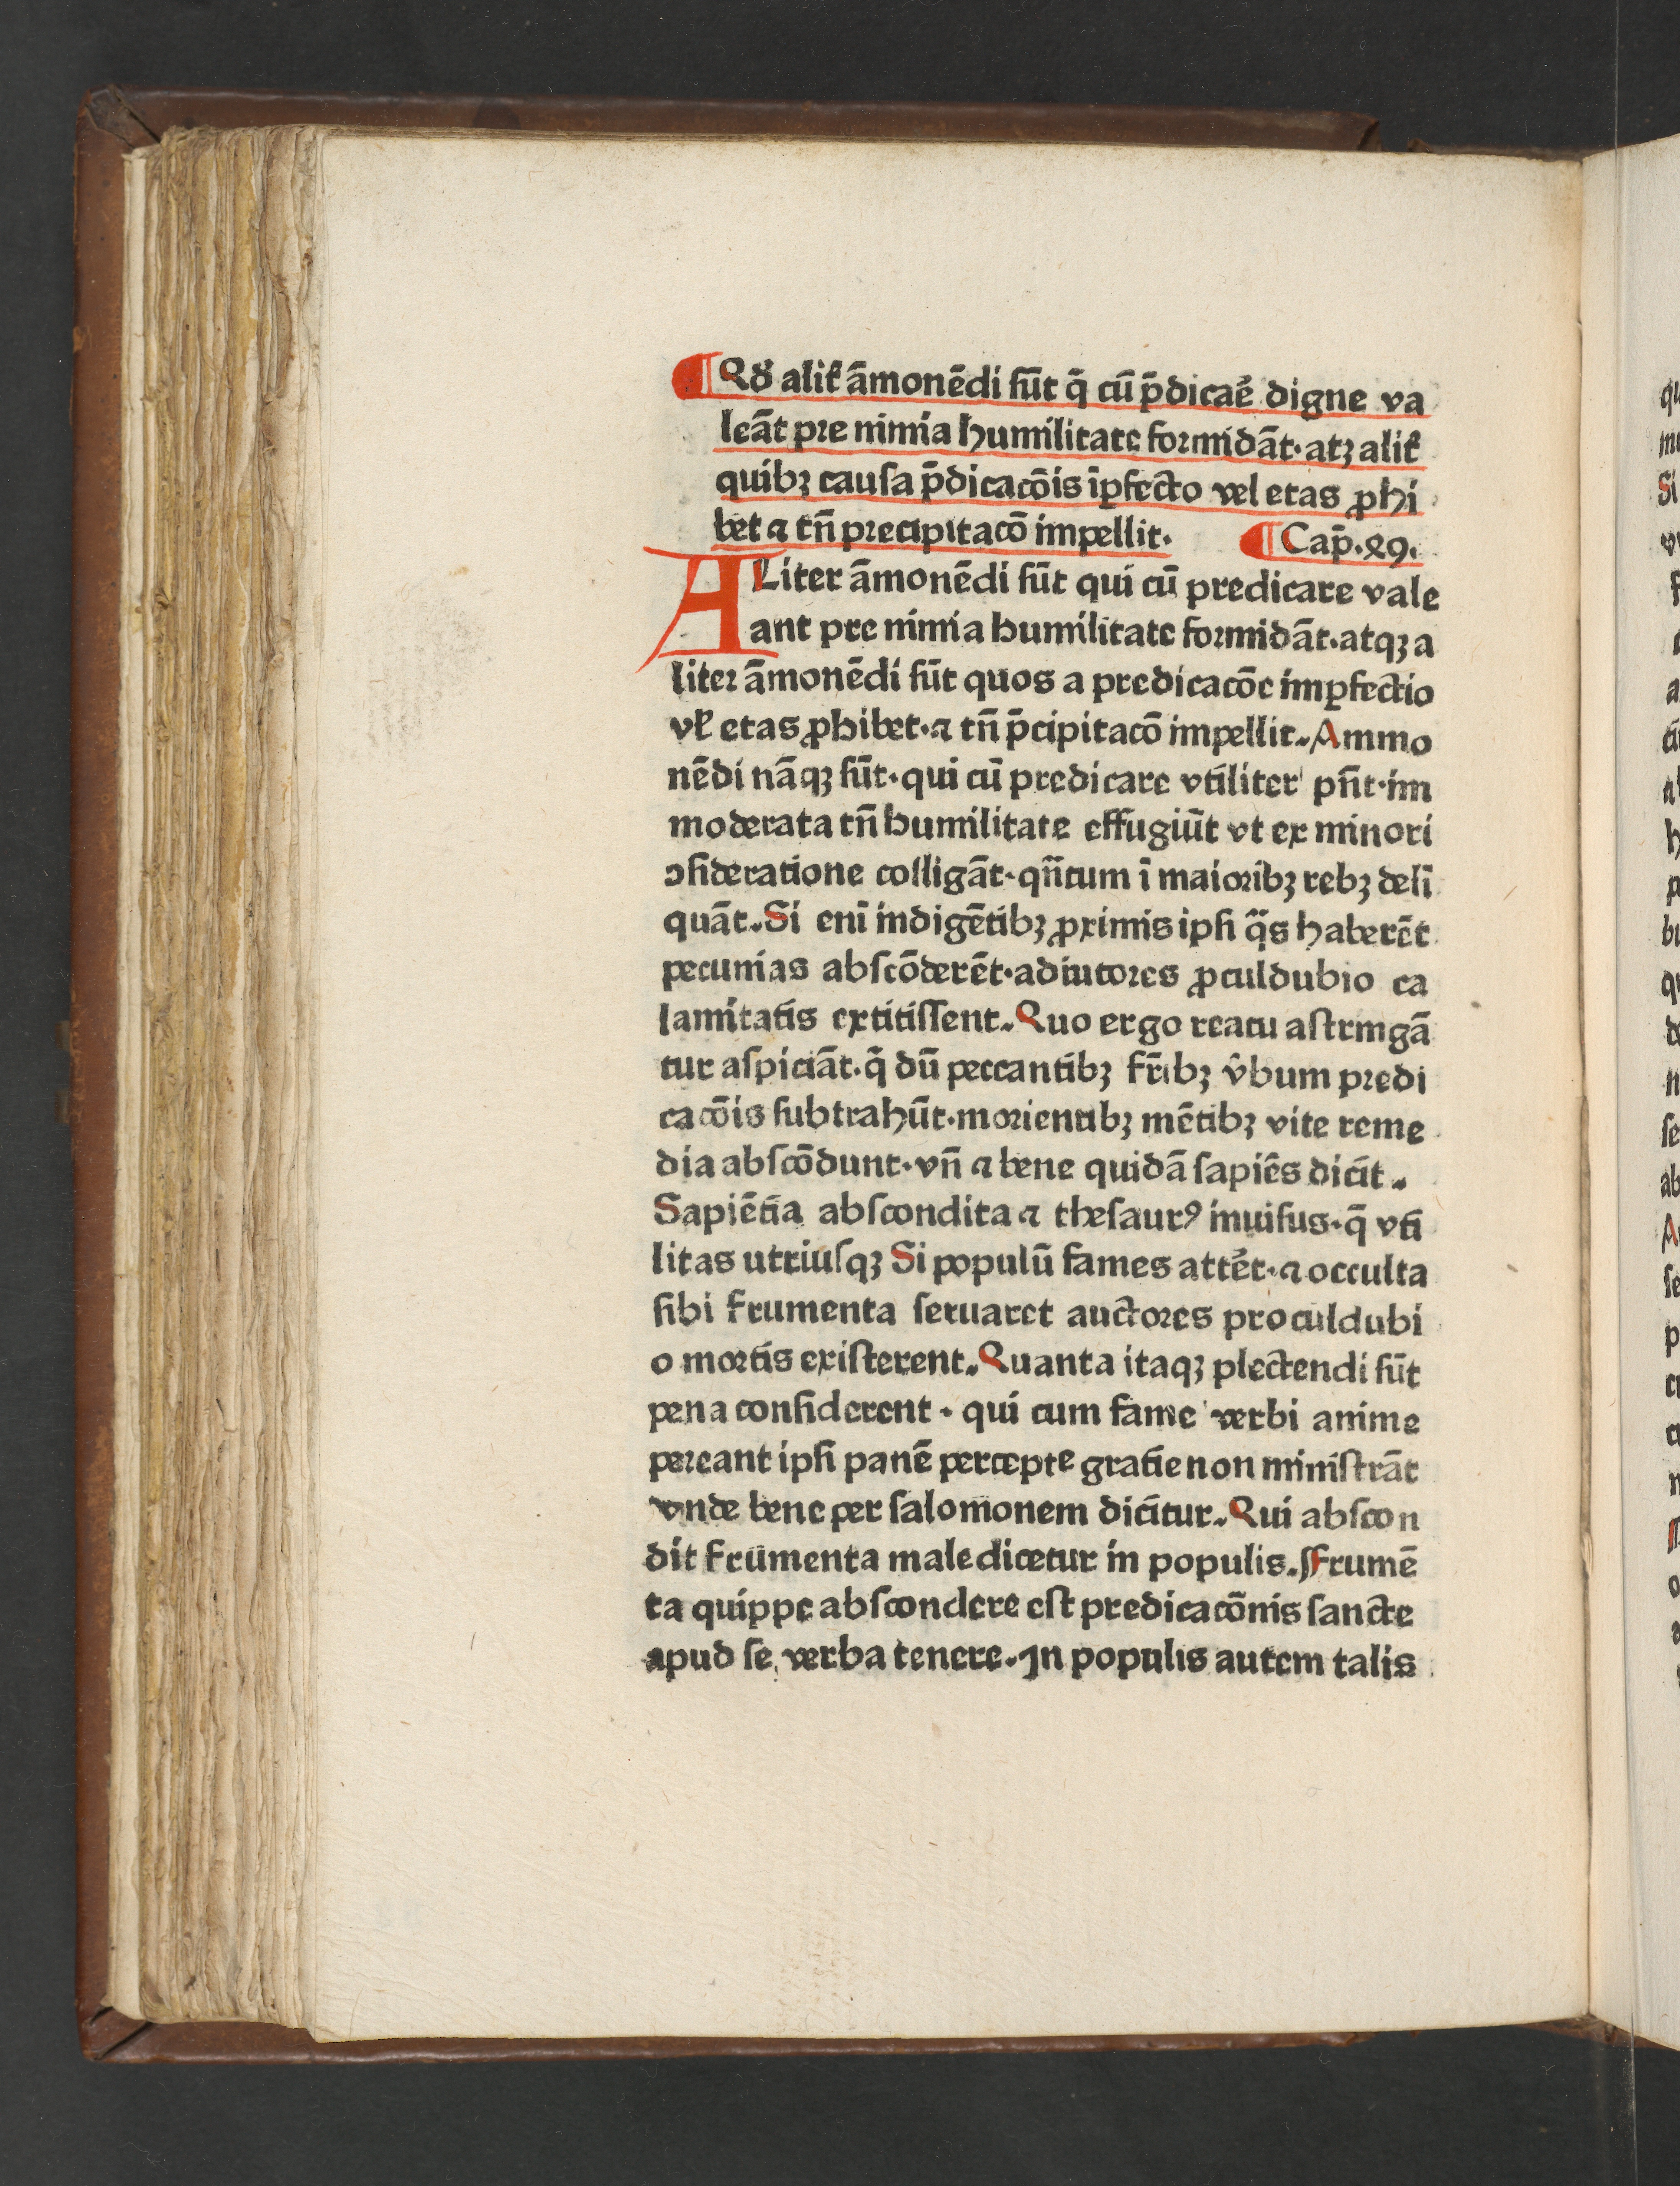 ¶ Qď alit᷑ āmonēdi ſūt q̄ cū p̄dicaē᷑ digne va
leāt pre nimia humilitate formidāt·atꝫ alit᷑
quibꝫ cauſa p̄dicacōis īꝑfectō vel etas ꝓhi
bet ⁊ tn̄ precipitacō impellit· ¶ Cap̄·29·
ALiter āmonēdi ſūt qui cū predicare vale
ant pre nimia humilitate formidāt·atqꝫ a
liter āmonēdi ſūt quos a predicacōe imꝑfectio
vꝉ etas ꝓhibet·⁊ tn̄ p̄cipitacō impellit. Ammo
nēdi nāqꝫ ſūt·qui cū predicare vtiliter pn̄t·im
moderata tn̄ humilitate effugiūt vt ex minori
ↄſideratione colligāt·qn̄tum ī maioribꝫ rebꝫ deli
quāt. Si eni indigētibꝫ ꝓximis ipſi q̄s haberēt
pecunias abſcōderēt·adiutores ꝓculdubio ca
lamitatis extitiſſent. Quo ergo reatu aſtringā
tur aſpiciāt·q̄ dū peccantibꝫ fr̄ibꝫ v̂bum predi
cacōis ſubtrahūt·morientibꝫ mētibꝫ vite reme
dia abſcōdunt·vn̄ ⁊ bene quidā ſapiēs dicit.
Sapiētia abſcondita ⁊ theſaurꝰ inuiſus·q̄ vti
litas utriuſqꝫ Si populū fames attēt·⁊ occulta
ſibi frumenta ſeruaret auctores proculdubi
o mortis exiſterent. Quanta itaqꝫ plectendi ſūt
pena conſiderent · qui cum fame verbi anime
pereant ipſi panē percepte gratie non miniſtrāt
vnde bene per ſalomonem dicitur. Qui abſcon
dit frumenta maledicetur in populis. Frumē
ta quippe abſcondere eſt predicacōnis ſancte
apud ſe verba tenere. In populis autem talis